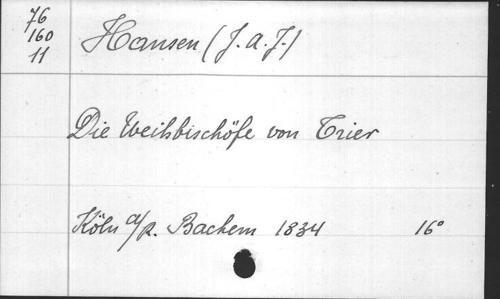 76
160
11
Hansen (J. A. J.)
Die Weihbischöfe von Trier
Köln a/R. Bachem 1834 16°